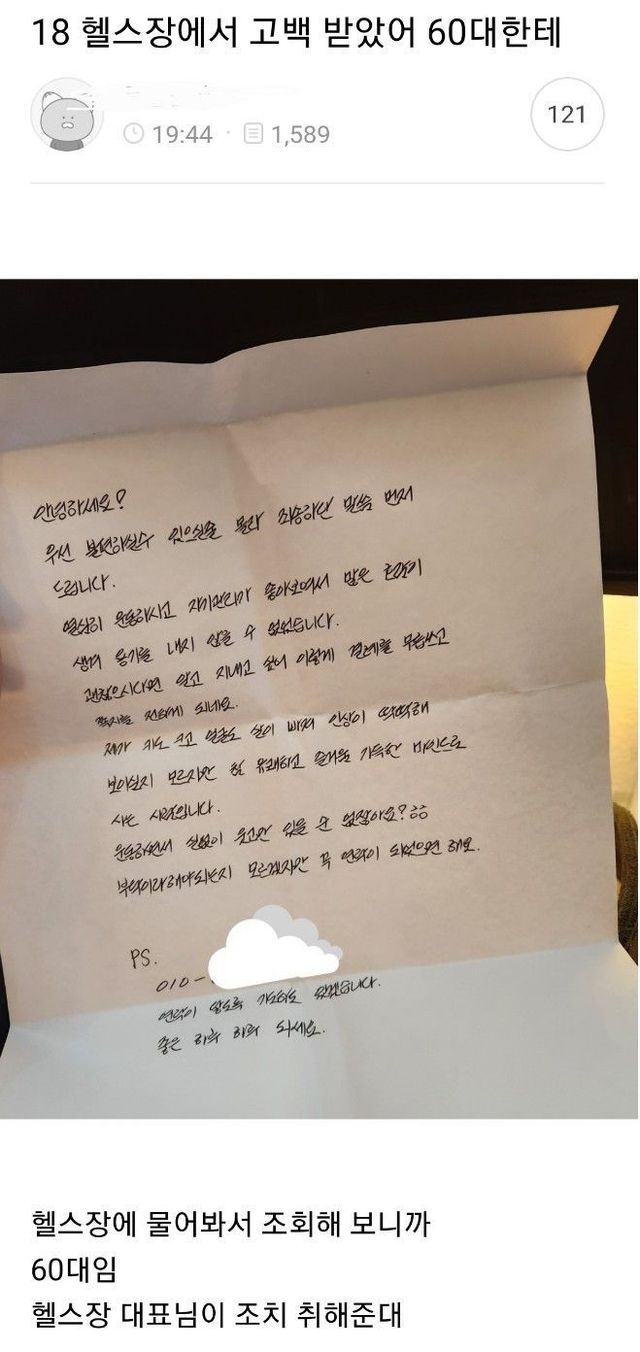 18 헬스장에서 고백 받았어 60대한테
19:44 · 1,589
121
안녕하세요?
우선 불편하실수 있으실줄 몰라 죄송하단 말씀 먼저
드립니다.
열심히 운동하시고 자기관리가 좋아보여서 많은 호감이
생겨 용기를 내지 않을 수 없었습니다.
괜찮으시다면 알고 지내고 싶어 이렇게 결례를 무릅쓰고
쪽지를 전하게 되네요.
제가 키도 크고 얼굴도 살이 빠져 인상이 딱딱해
보이실지 모르지만 참 유쾌하고 즐거움 가득한 마인드로
사는 사람입니다.
운동하면서 실없이 웃고만 있을 순 없잖아요?
부탁이라해야되는지 모르겠지만 꼭 연락이 되었으면 해요.
PS.
010-
연락이 닿도록 기도하고 있겠습니다.
좋은 하루 하루 되세요.
헬스장에 물어봐서 조회해 보니까
60대임
헬스장 대표님이 조치 취해준대